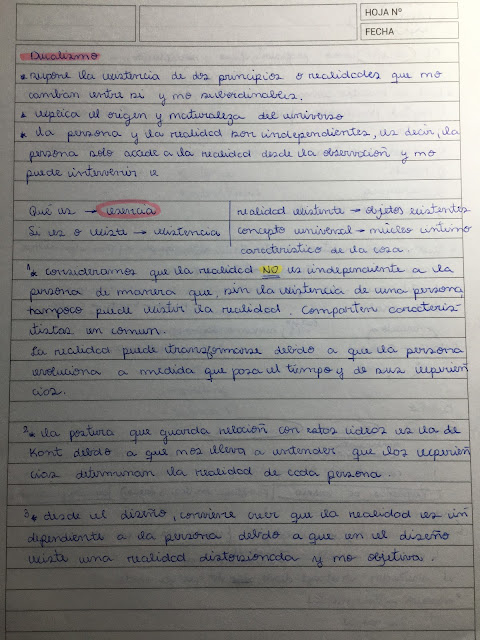 HOJA Nº
FECHA
Dualismo
* supone la existencia de dos principios o realidades que no
cambian entre si y no subordinables.
* explica el origen y naturaleza del universo
* la persona y la realidad son independientes, es decir, la
persona solo accede a la realidad desde la observación y no
puede intervenir e
Qué es → esencia
Si es o existe → existencia
realidad existente → objetos existentes
concepto universal → núcleo intimo
característico de la cosa.
1* consideramos que la realidad NO es independiente a la
persona de manera que, sin la existencia de una persona,
tampoco puede existir la realidad. Comparten caracterís-
tisticas en comun.
La realidad puede transformarse debido a que la persona
evoluciona a medida que pasa el tiempo y de sus experien
cias.
2* la postura que guarda relación con estos videos es la de
Kant debido a que nos lleva a entender que las experien
cias determinan la realidad de cada persona.
3* desde el diseño, conviene creer que la realidad es in
dependiente a la persona debido a que en el diseño
existe una realidad distorsionada y no objetiva.